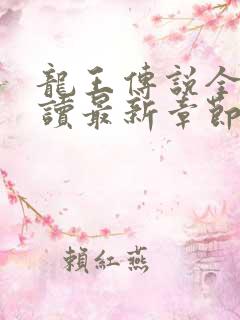 龍王傳說全
讀最新章節
賴紅燕